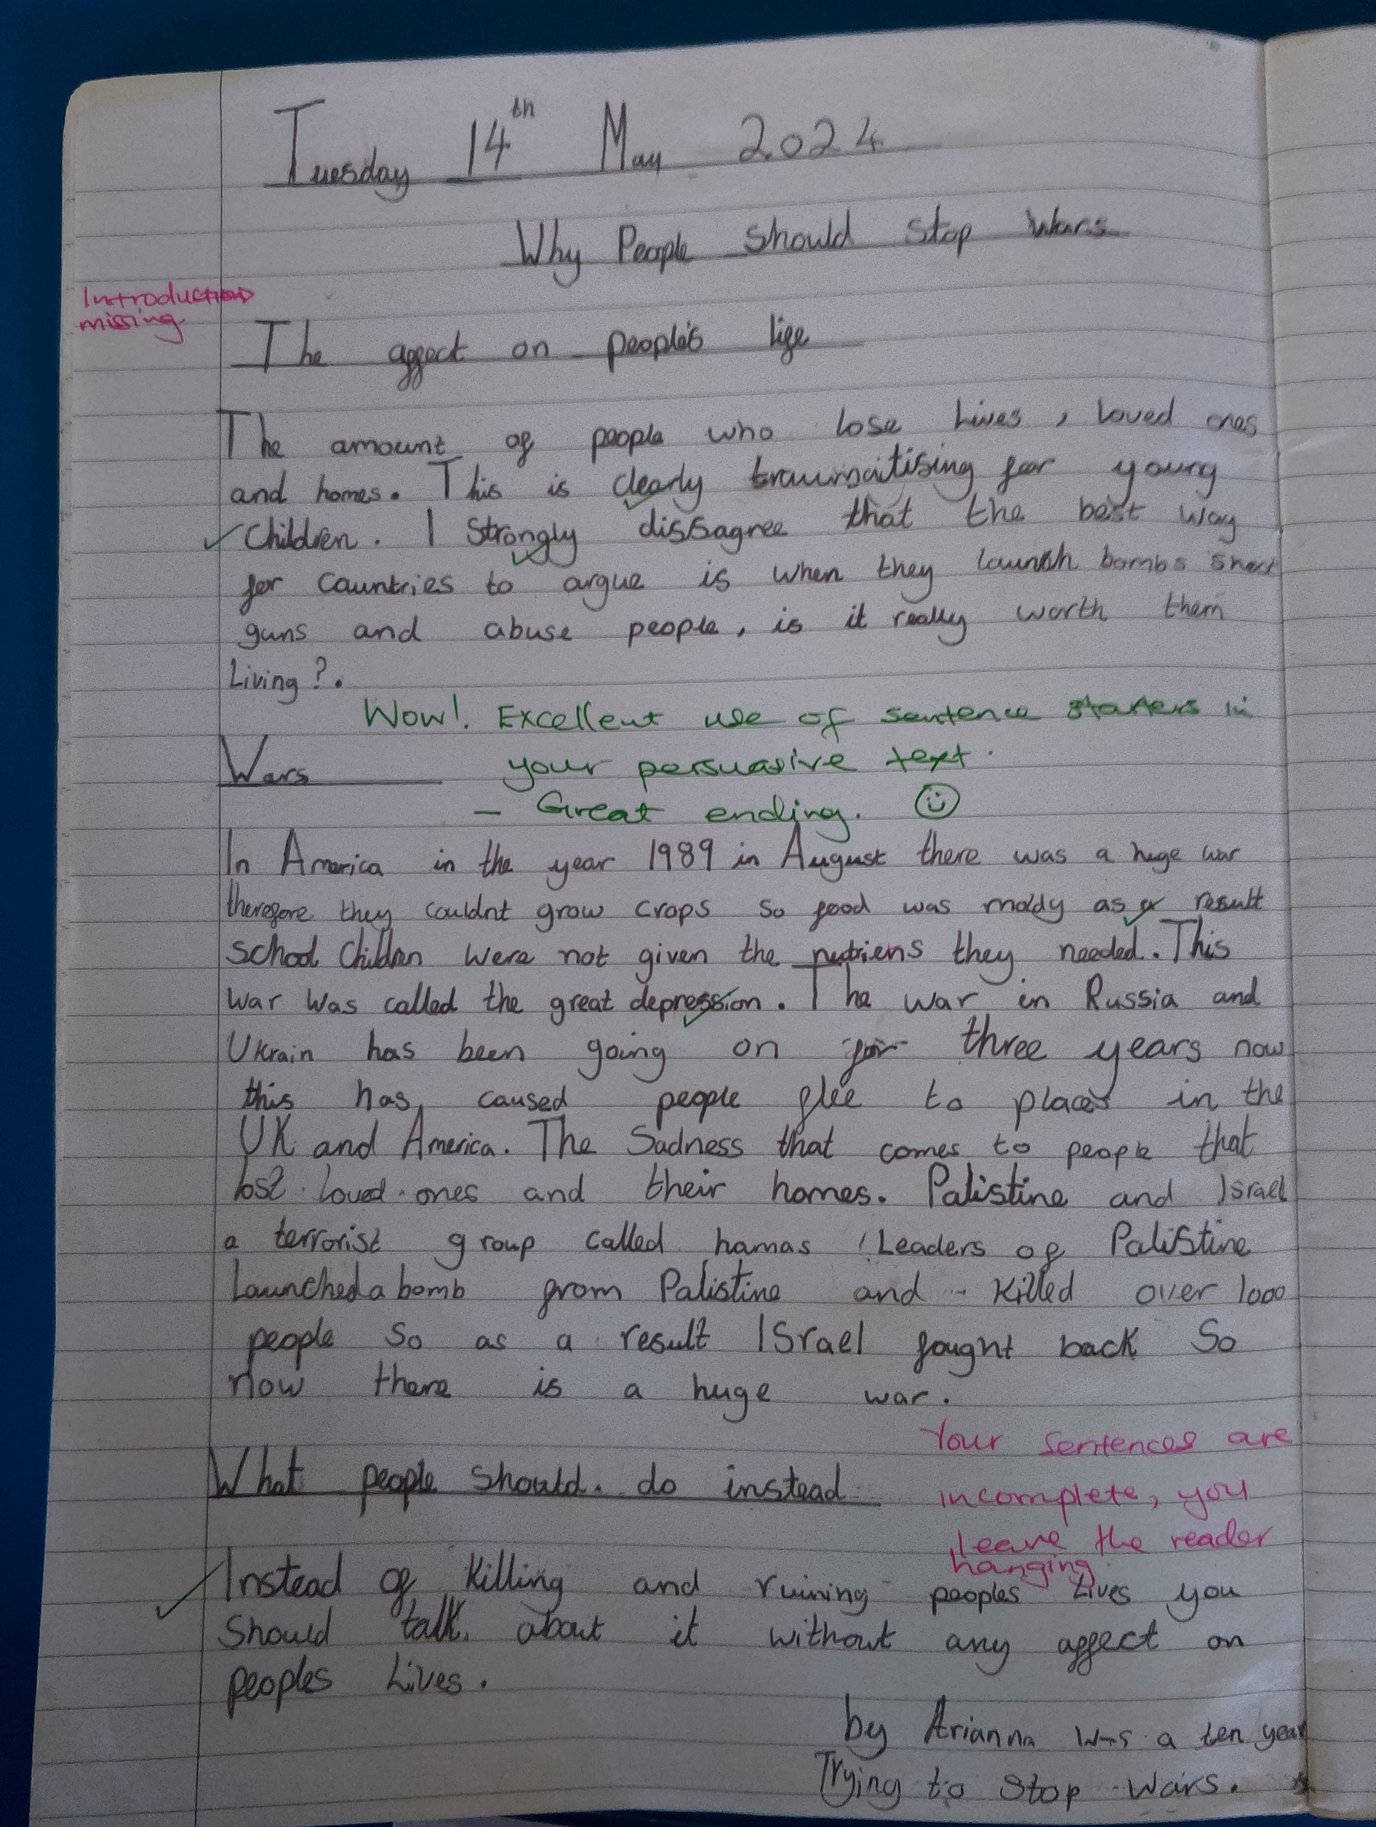 Tuesday 14th May 2024
Why People should stop Wars
Introduction
missing
The affect on people's life
The amount of people who lose Lives, loved ones
and homes. This is clearly traumatising for young
Children. I strongly dissagree that the best way
for countries to argue is when they launch bombs shoot
guns and abuse people, is it really worth them
Living?.
Wow! Excellent use of sentence starters in
Wars your persuasive text.
- Great ending. ☺
In America in the year 1989 in August there was a huge war
therefore they couldnt grow crops so food was moldy as a result
School Children were not given the nutriens they needed. This
war was called the great depression. The war in Russia and
Ukrain has been going on for three years now
this has caused people flee to places in the
UK and America. The Sadness that comes to people that
lost loved ones and their homes. Palistine and Israel
a terrorist group called hamas /Leaders of Palistine
Launched a bomb from Palistine and killed over 1000
people so as a result Israel fought back So
now there is a huge war.
Your sentences are
What people should. do instead incomplete, you
leave the reader
hanging.
Instead of killing and ruining peoples Lives you
Should talk about it without any affect on
peoples Lives.
by Arianna a ten year
Trying to stop wars.